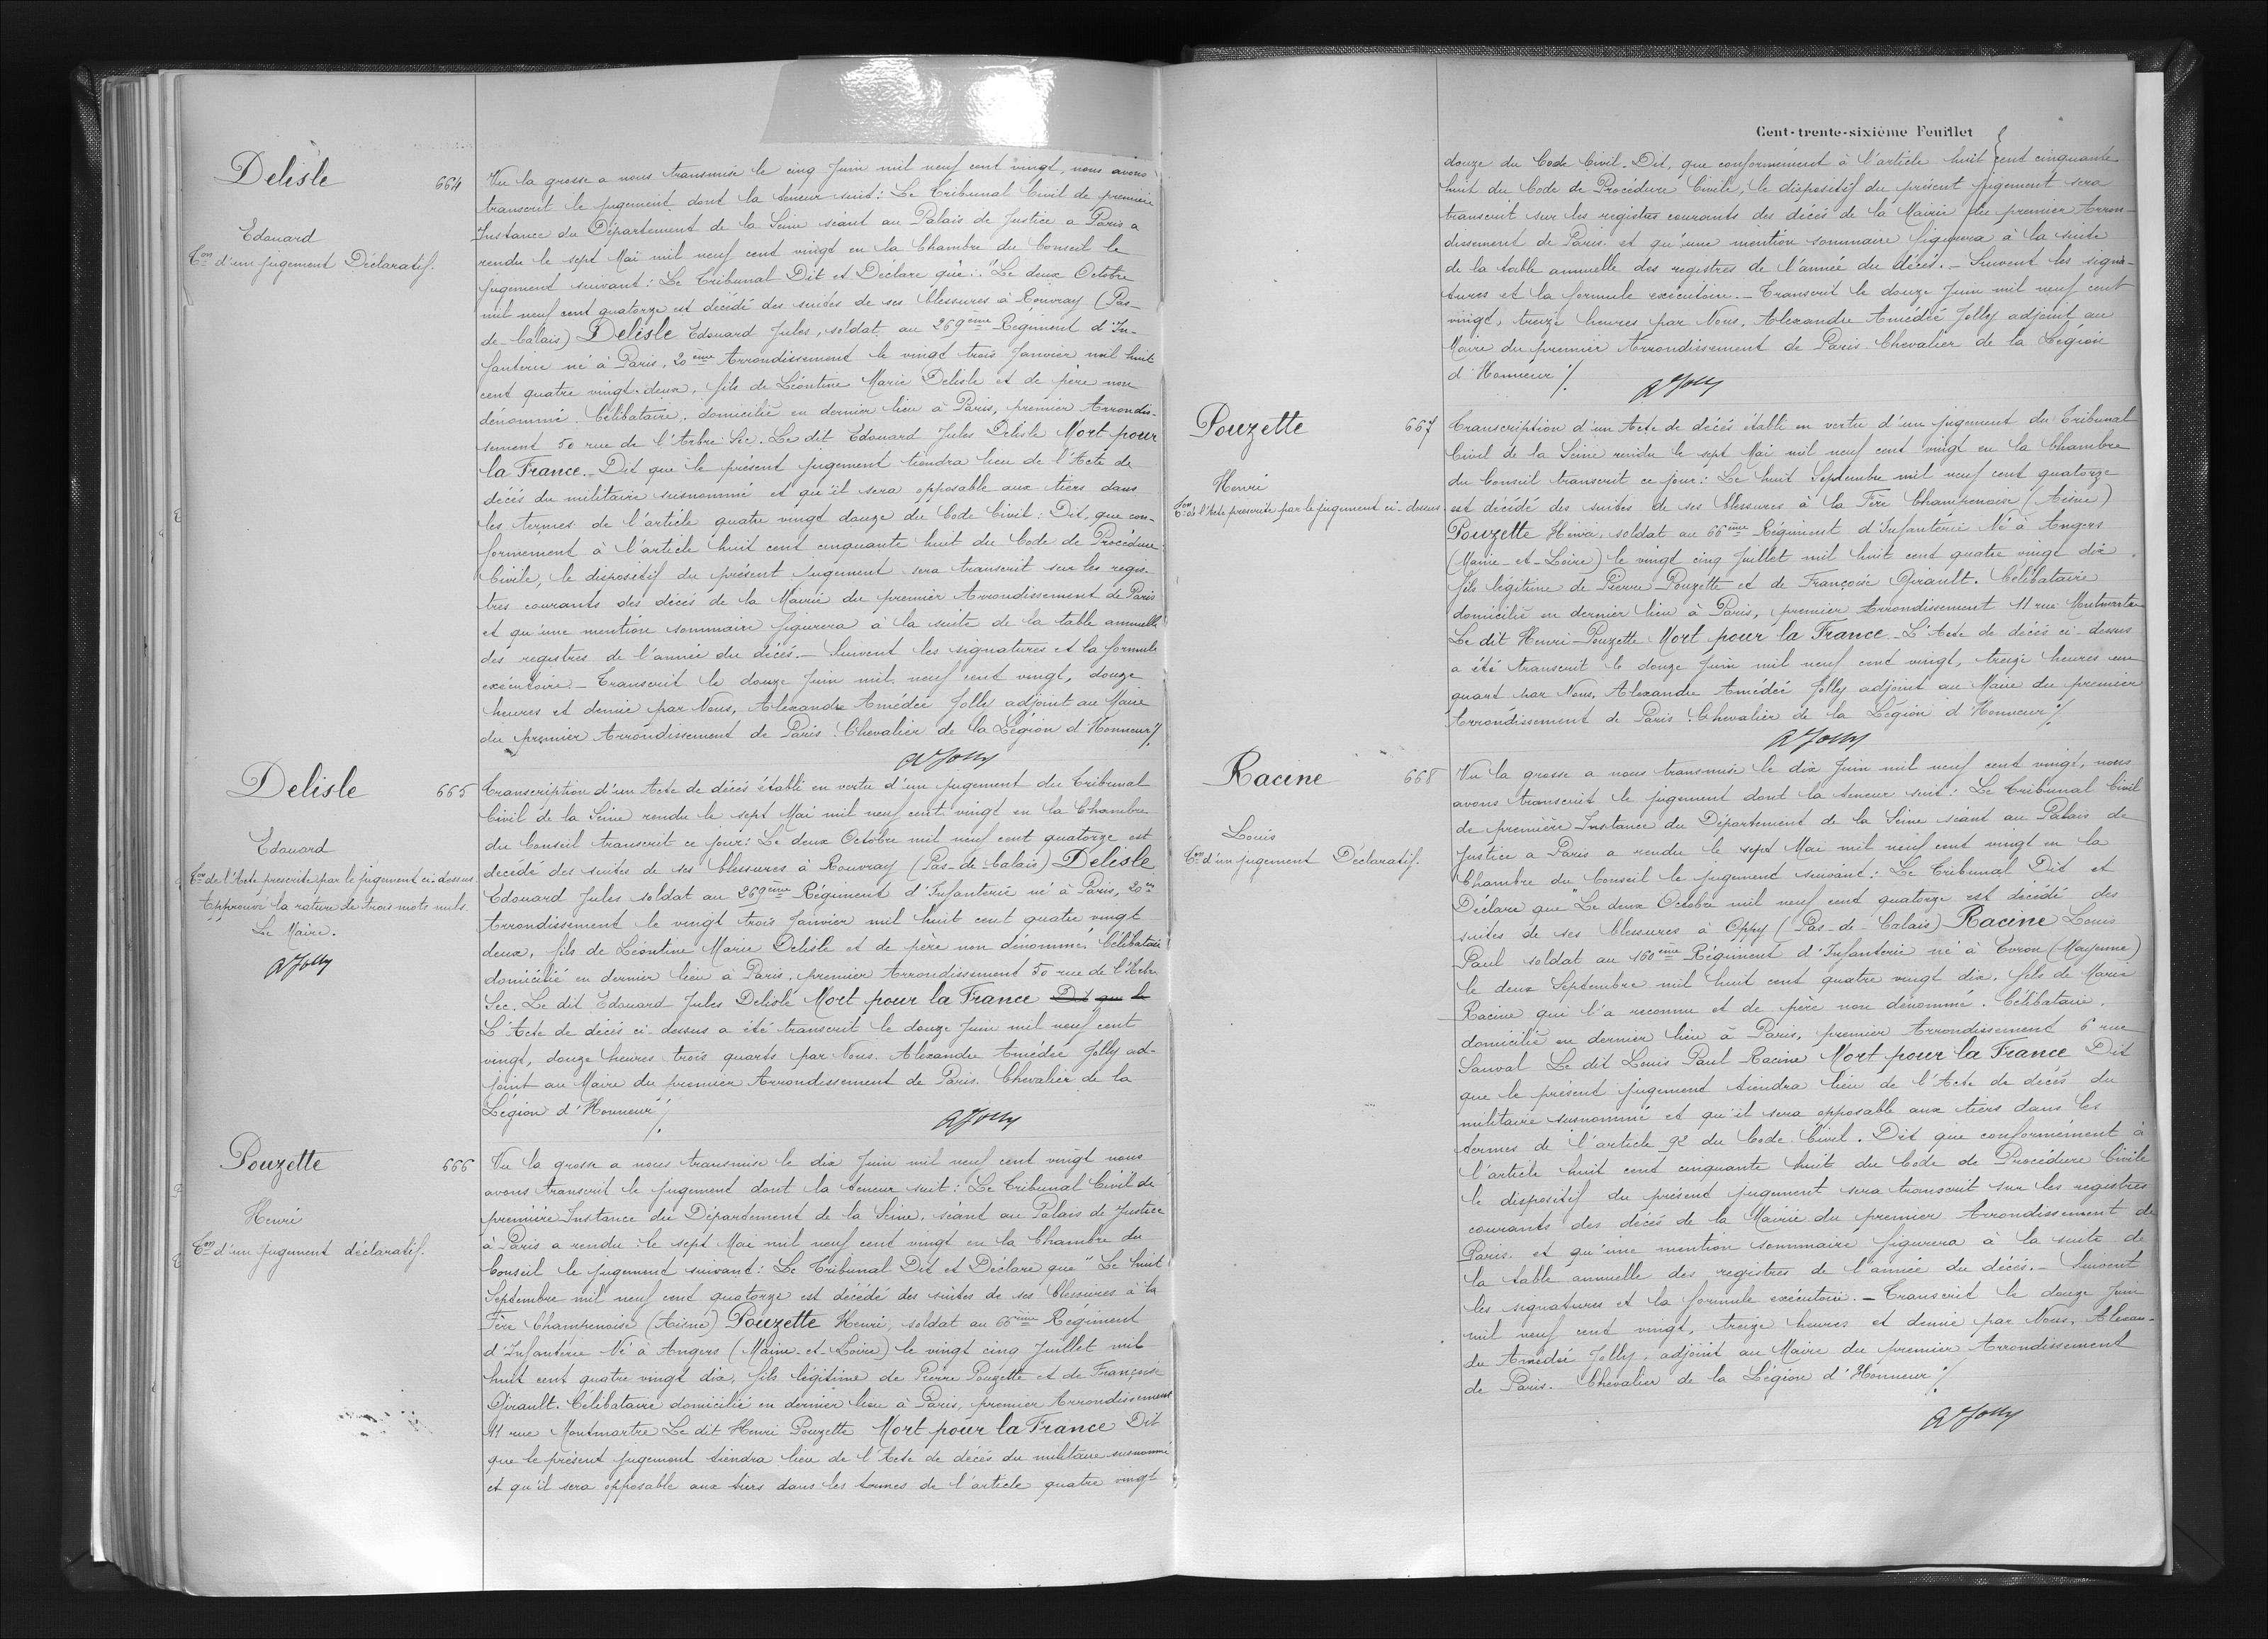 Delisle
664
Edouard
Con d'un jugement Déclaratif.
Vu la grosse a nous transmise le cinq Juin mil neuf cent vingt, nous avons
transcrit le jugement dont la teneur suit: Le Tribunal Civil de première
Instance du Département de la Seine séant au Palais de Justice a Paris a
rendu le sept Mai mil neuf cent vingt en la Chambre du Conseil le
jugement suivant: Le Tribunal Dit et Déclare que: "Le deux Octobre
mil neuf cent quatorze est décédé des suites de ses blessures à Rouvray (Pas-
de-Calais) Delisle Edouard Jules, soldat au 269ème Régiment d'In-
fanterie né à Paris, 20eme Arrondissement le vingt trois Janvier mil huit
cent quatre vingt-deux, fils de Léontine Marie Delisle et de père non
dénommé. Célibataire. domicilié en dernier lieu à Paris, premier Arrondis-
sement 50 rue de l'Arbre Sec. Le dit Edouard Jules Delisle Mort pour
la France. Dit que le présent jugement tiendra lieu de l'Acte de
décès du militaire susnommé et qu'il sera opposable aux tiers dans
les termes de l'article quatre vingt douze du Code Civil: Dit, que con-
formément à l'article huit cent cinquante huit du Code de Procédure
Civile, le dispositif du présent Jugement sera transcrit sur les regis-
tres courants des décès de la Mairie du premier Arrondissement de Paris
et qu'une mention sommaire figurera à la suite de la table annuelle
des registres de l'année du décès.- Suivent les signatures et la formule
exécutoire.- Transcrit le douze Juin mil neuf cent vingt, douze
heures et demie par Nous, Alexandre Amédée Jolly adjoint au Maire
du premier Arrondissement de Paris. Chevalier de la Légion d'Honneur ./.
A Jolly
Delisle
665
Edouard
Con de l'Acte prescrite par le jugement ci-dessus
Approuvé la rature de trois mots nuls.
Le Maire.
A Jolly
Transcription d'un Acte de décès établi en vertu d'un jugement du Tribunal
Civil de la Seine rendu le sept Mai mil neuf cent vingt en la Chambre
du Conseil transcrit ce jour: Le deux Octobre mil neuf cent quatorze est
décédé des suites de ses blessures à Rouvray (Pas-de-Calais) Delisle
Edouard Jules soldat au 269ème Régiment d'Infanterie né à Paris, 20me
Arrondissement le vingt trois Janvier mil huit cent quatre vingt
deux, fils de Léontine Marie Delisle et de père non dénommé. Célibataire
domicilié en dernier lieu à Paris, premier Arrondissement 50 rue de l'Arbre
Sec. Le dit Edouard Jules Delisle Mort pour la France Dit que le
L'Acte de décès ci-dessus a été transcrit le douze Juin mil neuf cent
vingt, douze heures trois quarts par Nous. Alexandre Amédée Jolly ad-
joint au Maire du premier Arrondissement de Paris. Chevalier de la
Légion d'Honneur ./.
A Jolly
Pouzette
666
Henri
Con d'un jugement déclaratif.
Vu la grosse a nous transmise le dix Juin mil neuf cent vingt nous
avons transcrit le jugement dont la teneur suit: Le Tribunal Civil de
première Instance du Département de la Seine, séant au Palais de Justice
à Paris a rendu le sept Mai mil neuf cent vingt en la Chambre du
Conseil le jugement suivant: Le Tribunal Dit et Déclare que "Le huit
Septembre mil neuf cent quatorze est décédé des suites de ses blessures à la
Fère Champenoise (Aisne) Pouzette Henri, soldat au 66ème Régiment
d'Infanterie Né à Angers (Maine-et-Loire) le vingt cinq Juillet mil
huit cent quatre vingt dix, fils légitime de Pierre Pouzette et de Françoise
Girault. Célibataire domicilié en dernier lieu à Paris, premier Arrondissement
11 rue Montmartre Le dit Henri Pouzette Mort pour la France Dit
que le présent jugement tiendra lieu de l'Acte de décès du militaire susnommé
et qu'il sera opposable aux tiers dans les termes de l'article quatre vingt
Cent-trente-sixième Feuillet
douze du Code Civil. Dit, que conformément à l'article huit cent cinquante
huit du Code de Procédure Civile, le dispositif du présent jugement sera
transcrit sur les registres courants des décès de la Mairie du premier Arron-
dissement de Paris et qu'une mention sommaire figurera à la suite
de la table annuelle des registres de l'année du décès.- Suivent les signa-
tures et la formule exécutoire.- Transcrit le douze Juin mil neuf cent
vingt, treize heures par Nous, Alexandre Amédée Jolly adjoint au
Maire du premier Arrondissement de Paris Chevalier de la Légion
d'Honneur ./.
A Jolly
Pouzette
667
Henri
Con de l'Acte prescrite par le jugement ci-dessus
Transcription d'un Acte de décès établi en vertu d'un jugement du Tribunal
Civil de la Seine rendu le sept Mai mil neuf cent vingt en la Chambre
du Conseil transcrit ce jour: Le huit Septembre mil neuf cent quatorze
est décédé des suites de ses blessures à la Fère Champenoise (Aisne)
Pouzette Henri, soldat au 66ème Régiment d'Infanterie Né à Angers
(Maine-et-Loire) le vingt cinq Juillet mil huit cent quatre vingt dix
fils légitime de Pierre Pouzette et de Françoise Girault. Célibataire
domicilié en dernier lieu à Paris, premier Arrondissement 11 rue Montmartre
Le dit Henri Pouzette Mort pour la France. L'Acte de décès ci-dessus
a été transcrit le douze Juin mil neuf cent vingt, treize heures un
quart par Nous, Alexandre Amédée Jolly adjoint au Maire du premier
Arrondissement de Paris. Chevalier de la Légion d'Honneur ./.
A Jolly
Racine
668
Louis
Con d'un jugement Déclaratif.
Vu la grosse a nous transmise le dix Juin mil neuf cent vingt, nous
avons transcrit le jugement dont la teneur suit: Le Tribunal Civil
de première Instance du Département de la Seine séant au Palais de
Justice a Paris a rendu le sept Mai mil neuf cent vingt en la
Chambre du Conseil le jugement suivant: Le Tribunal Dit et
Déclare que "Le deux Octobre mil neuf cent quatorze est décédé des
suites de ses blessures à Oppy (Pas-de-Calais) Racine Louis
Paul soldat au 160ème Régiment d'Infanterie né à Evron (Mayenne)
le deux Septembre mil huit cent quatre vingt dix, fils de Marie
Racine qui l'a reconnu et de père non dénommé. Célibataire.
domicilié en dernier lieu à Paris, premier Arrondissement 6 rue
Sauval Le dit Louis Paul Racine Mort pour la France Dit
que le présent jugement tiendra lieu de l'Acte de décès du
militaire susnommé et qu'il sera opposable aux tiers dans les
termes de l'article 92 du Code Civil. Dit que conformément à
l'article huit cent cinquante huit du Code de Procédure Civile
le dispositif du présent jugement sera transcrit sur les registres
courants des décès de la Mairie du premier Arrondissement de
Paris. et qu'une mention sommaire figurera à la suite de
la table annuelle des registres de l'année du décès.- Suivent
les signatures et la formule exécutoire.- Transcrit le douze Juin
mil neuf cent vingt, treize heures et demie par Nous, Alexan-
dre Amédée Jolly, adjoint au Maire du premier Arrondissement
de Paris. Chevalier de la Légion d'Honneur ./.
A Jolly